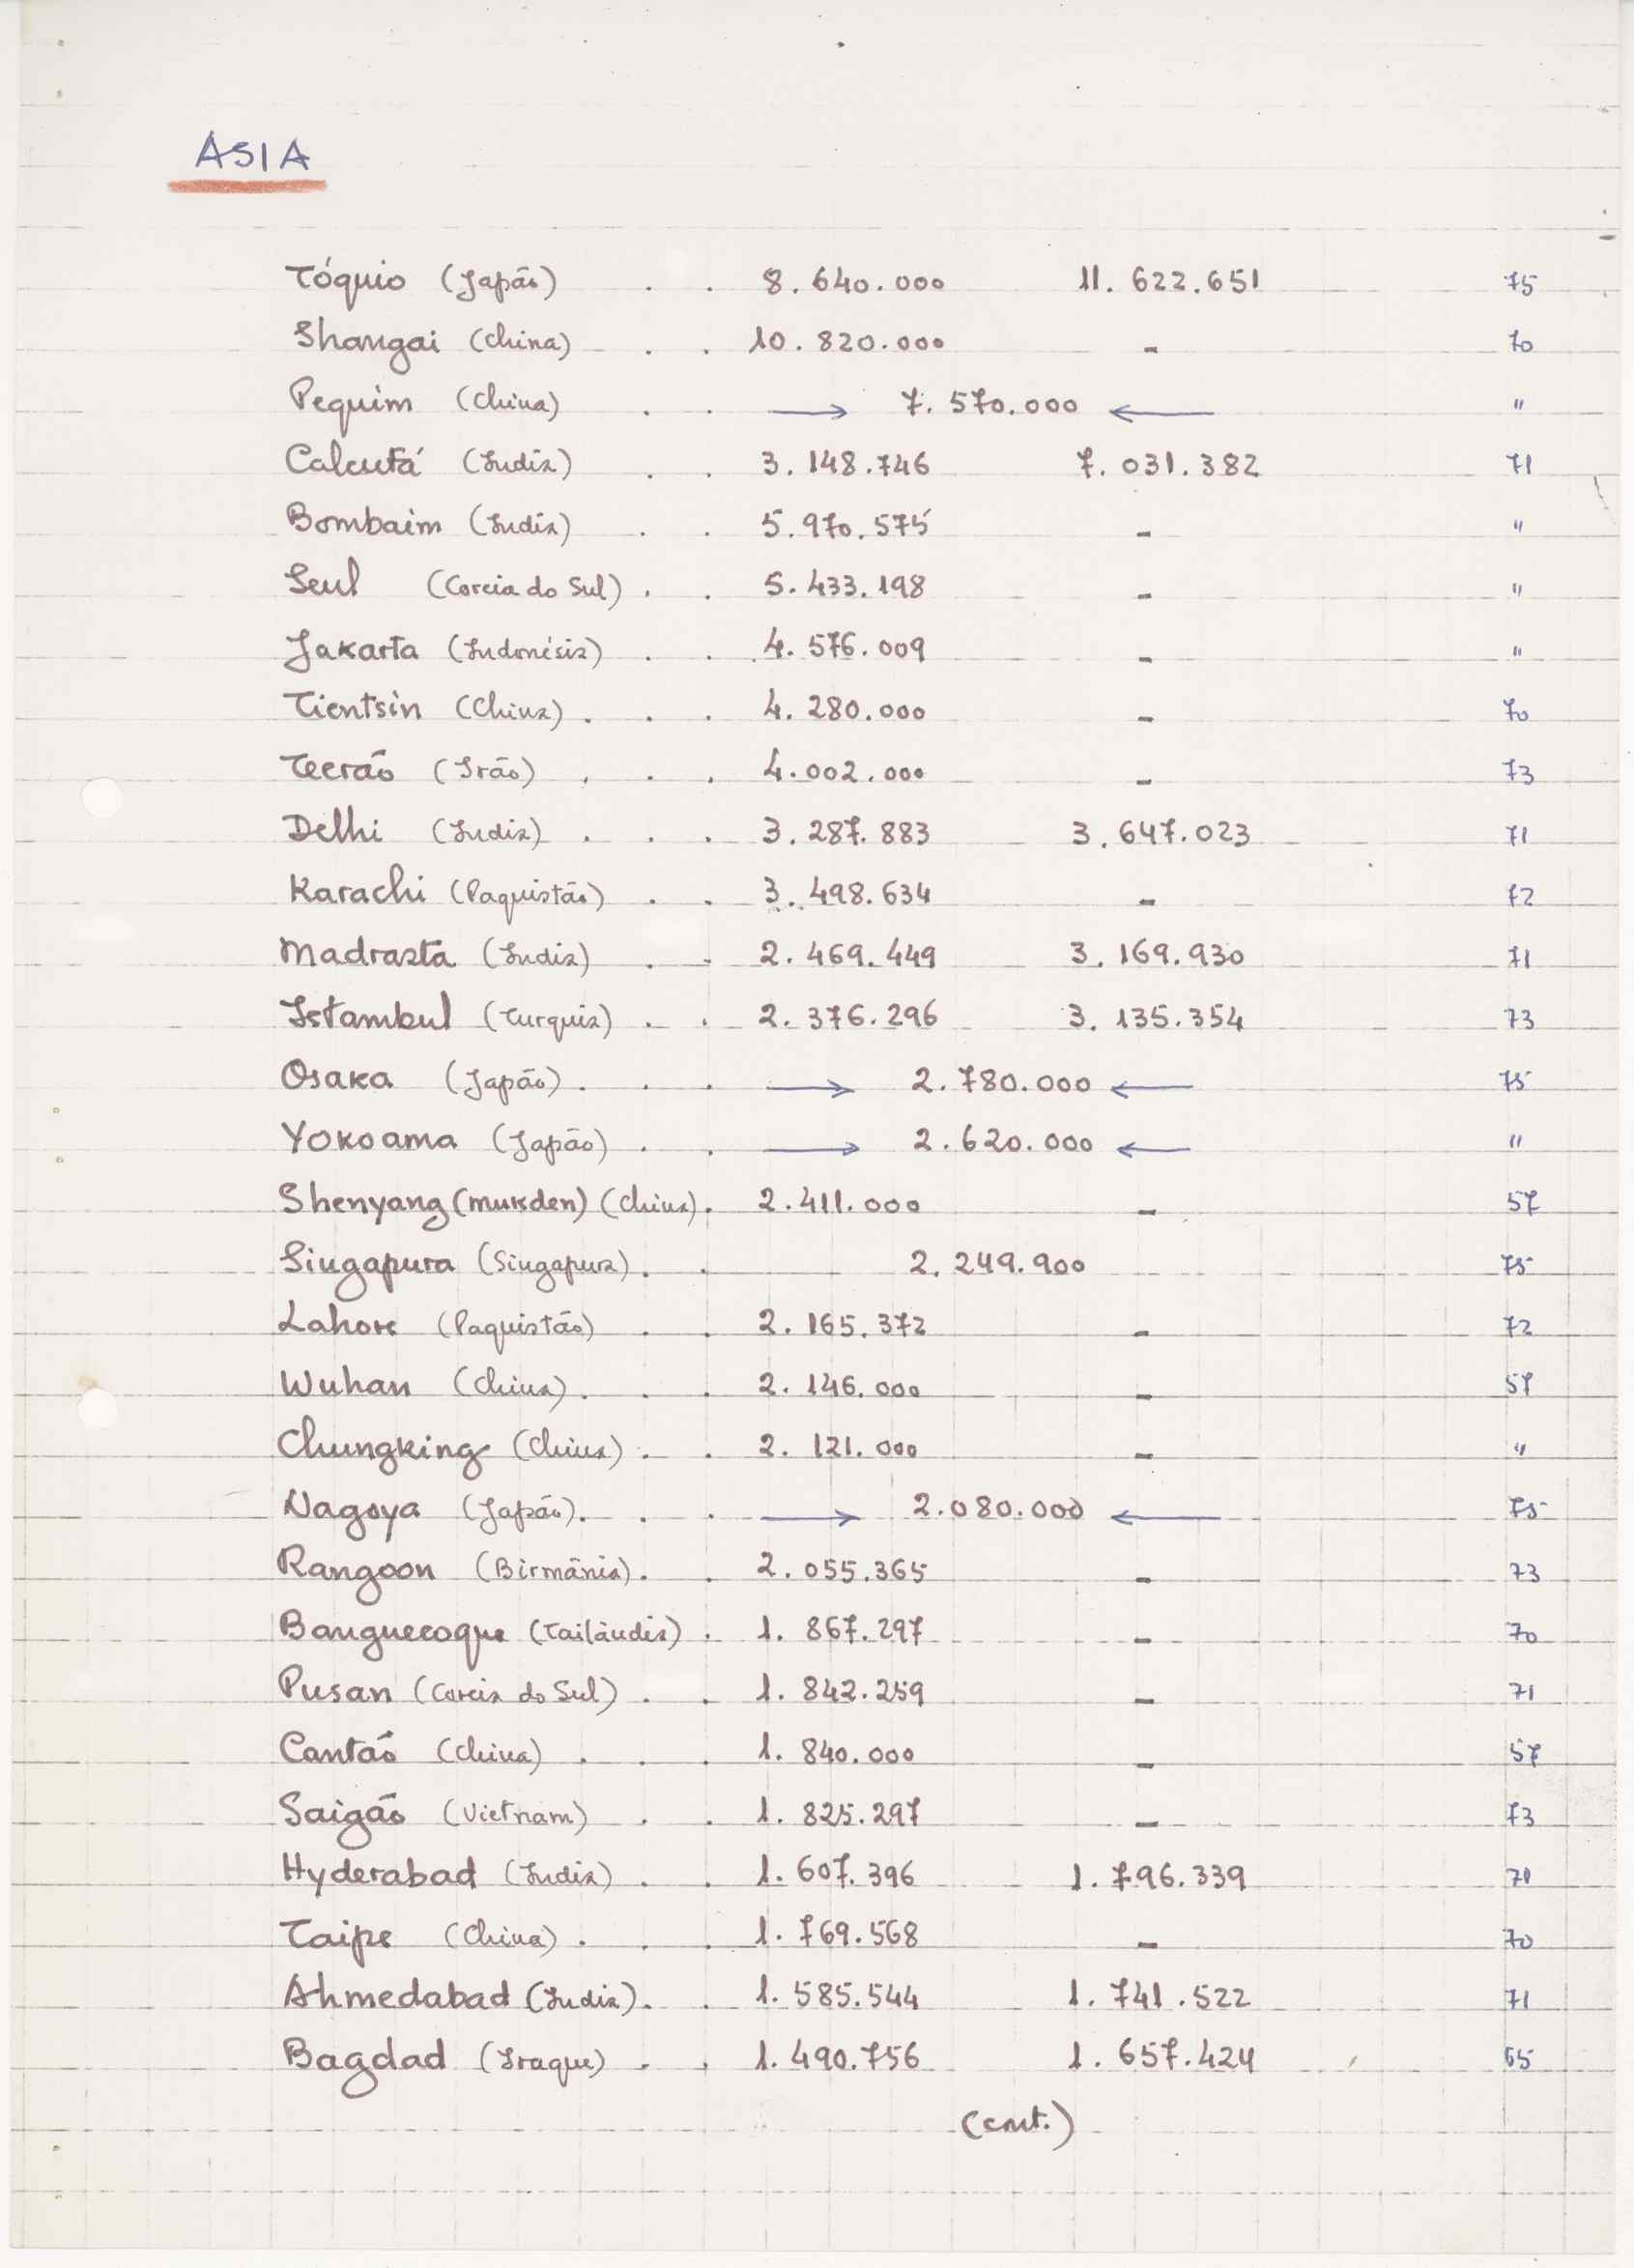 ASIA
Tóquio (Japão) . . 8.640.000 11.622.651 75
Shangai (China) . . 10.820.000 - 70
Pequim (China) . . → 7.570.000 ← "
Calcutá (India) . . 3.148.746 7.031.382 71
Bombaim (India) . . 5.970.575 - "
Seul (Coreia do Sul) . . 5.433.198 - "
Jakarta (Indonésia) . . 4.576.009 - "
Tientsin (China) . . . 4.280.000 - 70
Teerão (Irão) . . . 4.002.000 - 73
Delhi (India) . . . 3.287.883 3.647.023 71
Karachi (Paquistão) . . 3.498.634 - 72
Madrasta (India) . . 2.469.449 3.169.930 71
Istambul (Turquia) . . 2.376.296 3.135.354 73
Osaka (Japão) . . . → 2.780.000 ← 75
Yokoama (Japão) . . → 2.620.000 ← "
Shenyang (Mukden) (China) . 2.411.000 - 57
Singapura (Singapura) . . 2.249.900 75
Lahore (Paquistão) . . 2.165.372 - 72
Wuhan (China) . . . 2.146.000 - 57
Chungking (China) . . 2.121.000 - "
Nagoya (Japão) . . . → 2.080.000 ← 75
Rangoon (Birmânia) . . 2.055.365 - 73
Banguecoque (Tailândia) . 1.867.297 - 70
Pusan (Coreia do Sul) . . 1.842.259 - 71
Cantão (China) . . . 1.840.000 - 57
Saigão (Vietnam) . . 1.825.297 - 73
Hyderabad (India) . . 1.607.396 1.796.339 71
Taipe (China) . . . 1.769.568 - 70
Ahmedabad (India) . . 1.585.544 1.741.522 71
Bagdad (Iraque) . . 1.490.756 1.657.424 65
(cont.)